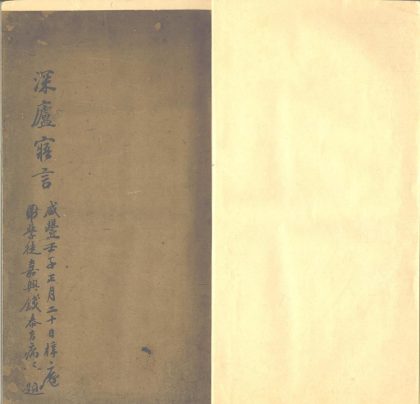 深廬寤言
咸豐壬子正月二十日梓庵
學徒嘉興錢泰吉病